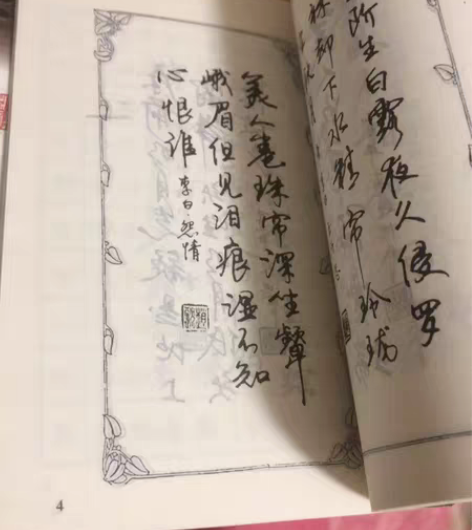 阶生白露夜久侵罗
袜却下水精帘玲珑
美人卷珠帘深坐颦
峨眉但见泪痕湿不知
心恨谁 李白·怨情
4